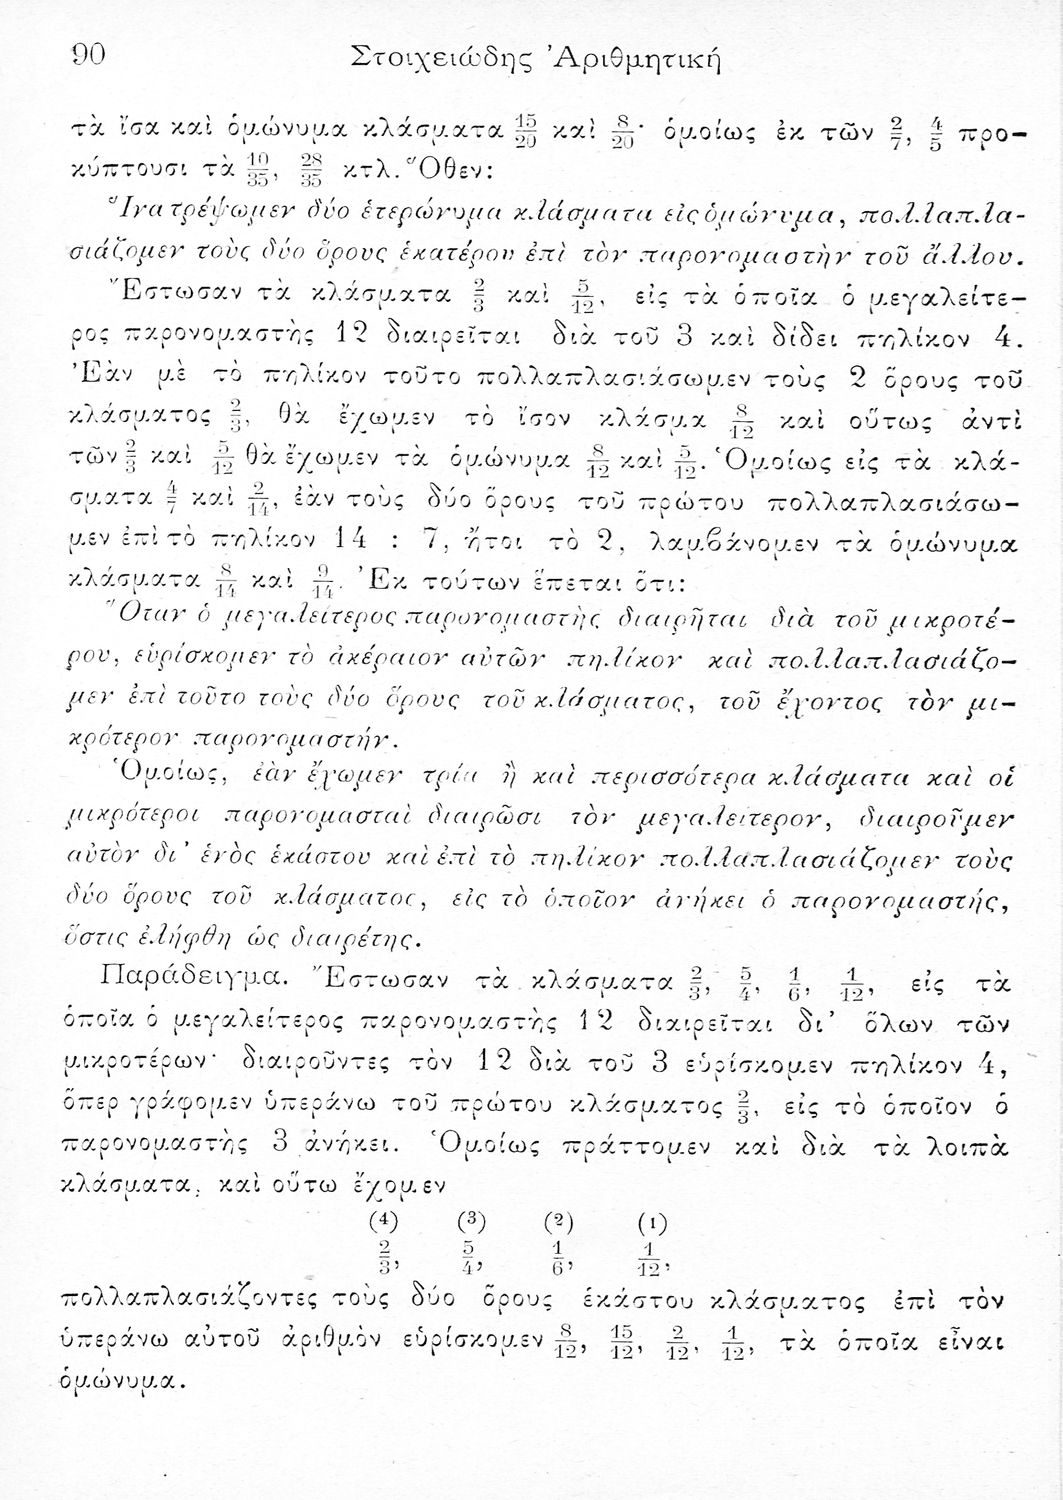 90 Στοιχειώδης Ἀριθμητική
τὰ ἴσα καὶ ὁμώνυμα κλάσματα 15/20 καὶ 8/20· ὁμοίως ἐκ τῶν 2/7, 4/5 προ-
κύπτουσι τὰ 10/35, 28/35 κτλ. Ὅθεν:
Ἵνα τρέψωμεν δύο ἑτερώνυμα κλάσματα εἰς ὁμώνυμα, πολλαπλα-
σιάζομεν τοὺς δύο ὅρους ἑκατέρου ἐπὶ τὸν παρονομαστὴν τοῦ ἄλλου.
Ἔστωσαν τὰ κλάσματα 2/3 καὶ 5/12, εἰς τὰ ὁποῖα ὁ μεγαλείτε-
ρος παρονομαστὴς 12 διαιρεῖται διὰ τοῦ 3 καὶ δίδει πηλίκον 4.
Ἐὰν μὲ τὸ πηλίκον τοῦτο πολλαπλασιάσωμεν τοὺς 2 ὅρους τοῦ
κλάσματος 2/3, θὰ ἔχωμεν τὸ ἴσον κλάσμα 8/12 καὶ οὕτως ἀντὶ
τῶν 2/3 καὶ 5/12 θὰ ἔχωμεν τὰ ὁμώνυμα 8/12 καὶ 5/12. Ὁμοίως εἰς τὰ κλά-
σματα 4/7 καὶ 2/14, ἐὰν τοὺς δύο ὅρους τοῦ πρώτου πολλαπλασιάσω-
μεν ἐπὶ τὸ πηλίκον 14 : 7, ἤτοι τὸ 2, λαμβάνομεν τὰ ὁμώνυμα
κλάσματα 8/14 καὶ 9/14. Ἐκ τούτων ἕπεται ὅτι:
Ὅταν ὁ μεγαλείτερος παρονομαστὴς διαιρῆται διὰ τοῦ μικροτέ-
ρου, εὑρίσκομεν τὸ ἀκέραιον αὐτῶν πηλίκον καὶ πολλαπλασιάζο-
μεν ἐπὶ τοῦτο τοὺς δύο ὅρους τοῦ κλάσματος, τοῦ ἔχοντος τὸν μι-
κρότερον παρονομαστήν.
Ὁμοίως, ἐὰν ἔχωμεν τρία ἢ καὶ περισσότερα κλάσματα καὶ οἱ
μικρότεροι παρονομασταὶ διαιρῶσι τὸν μεγαλείτερον, διαιροῦμεν
αὐτὸν δι' ἑνὸς ἑκάστου καὶ ἐπὶ τὸ πηλίκον πολλαπλασιάζομεν τοὺς
δύο ὅρους τοῦ κλάσματος, εἰς τὸ ὁποῖον ἀνήκει ὁ παρονομαστής,
ὅστις ἐλήφθη ὡς διαιρέτης.
Παράδειγμα. Ἔστωσαν τὰ κλάσματα 2/3, 5/4, 1/6, 1/12, εἰς τὰ
ὁποῖα ὁ μεγαλείτερος παρονομαστὴς 12 διαιρεῖται δι' ὅλων τῶν
μικροτέρων· διαιροῦντες τὸν 12 διὰ τοῦ 3 εὑρίσκομεν πηλίκον 4,
ὅπερ γράφομεν ὑπεράνω τοῦ πρώτου κλάσματος 2/3, εἰς τὸ ὁποῖον ὁ
παρονομαστὴς 3 ἀνήκει. Ὁμοίως πράττομεν καὶ διὰ τὰ λοιπὰ
κλάσματα, καὶ οὕτω ἔχομεν
(4) (3) (2) (1)
2/3, 5/4, 1/6, 1/12,
πολλαπλασιάζοντες τοὺς δύο ὅρους ἑκάστου κλάσματος ἐπὶ τὸν
ὑπεράνω αὐτοῦ ἀριθμὸν εὑρίσκομεν 8/12, 15/12, 2/12, 1/12, τὰ ὁποῖα εἶναι
ὁμώνυμα.